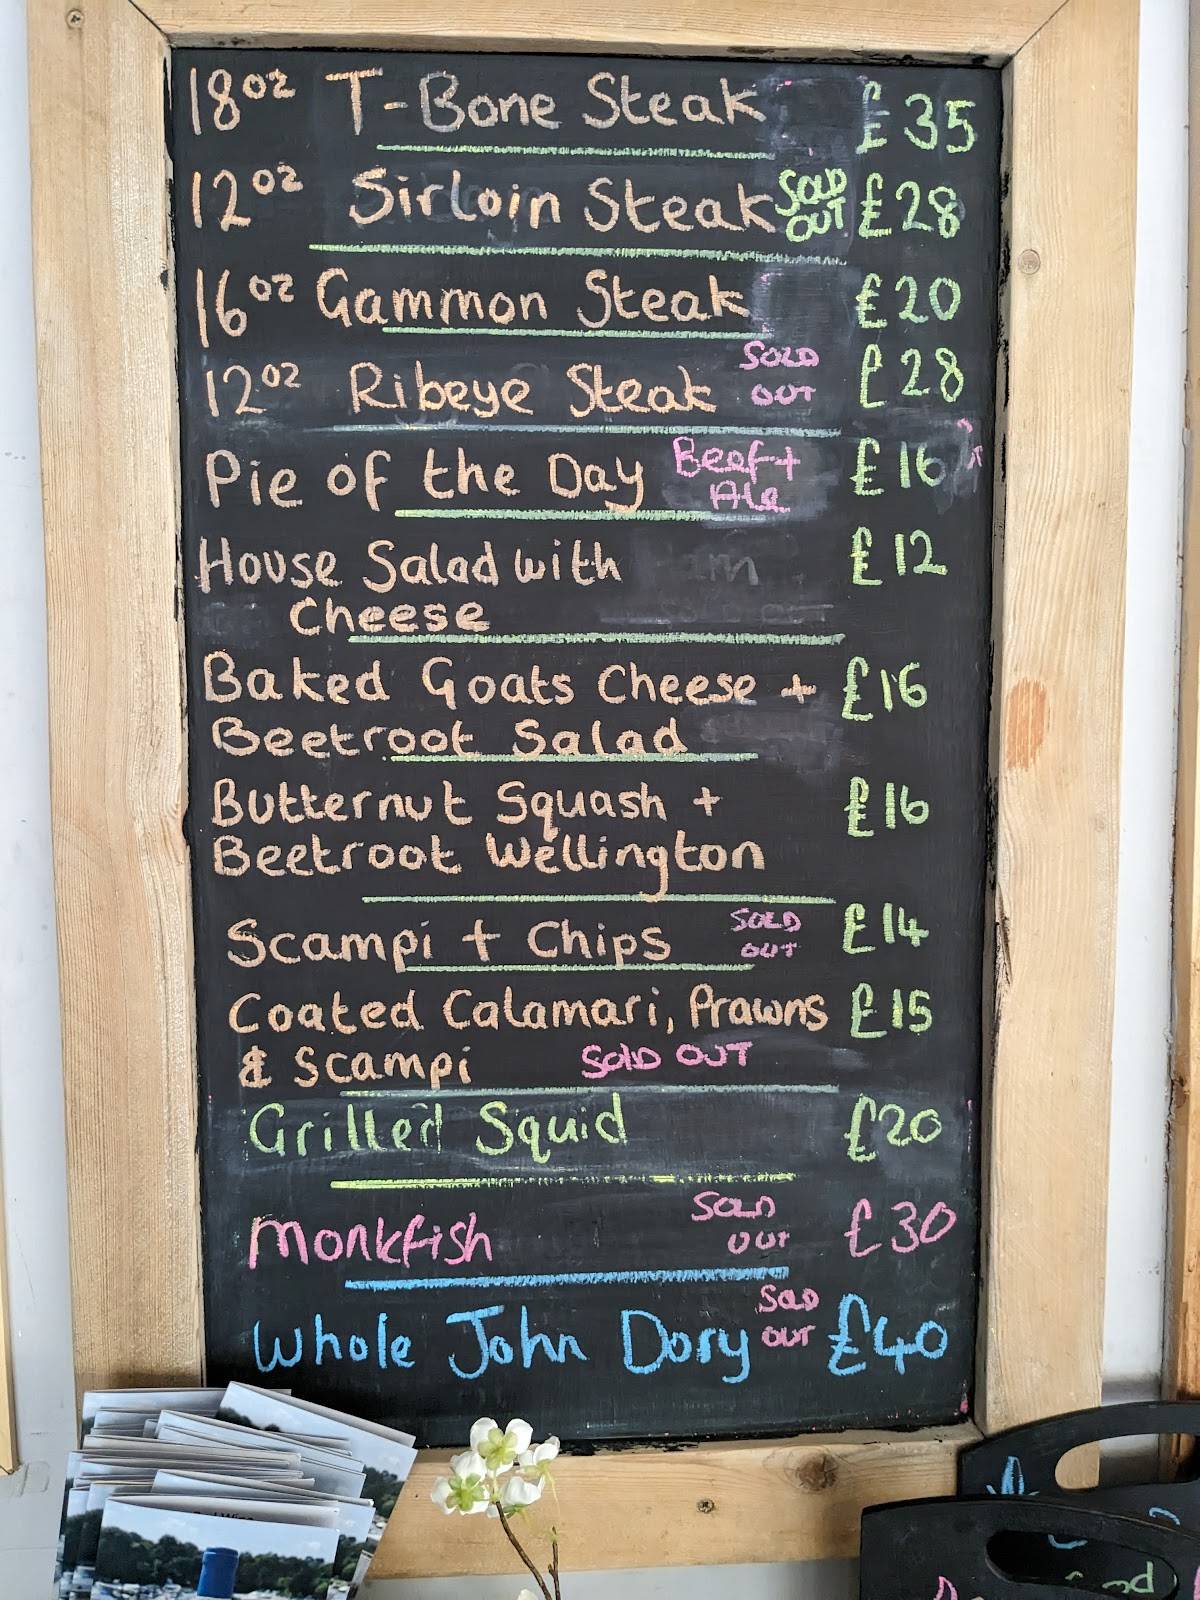 18oz T-Bone Steak £35
12oz Sirloin Steak SOLD OUT £28
16oz Gammon Steak £20
12oz Ribeye Steak SOLD OUT £28
Pie of the Day Beef + Ale £16
House Salad with £12
Cheese
Baked Goats Cheese + £16
Beetroot Salad
Butternut Squash + £16
Beetroot Wellington
Scampi + Chips SOLD OUT £14
Coated Calamari, Prawns £15
& Scampi SOLD OUT
Grilled Squid £20
Monkfish SOLD OUT £30
Whole John Dory SOLD OUT £40